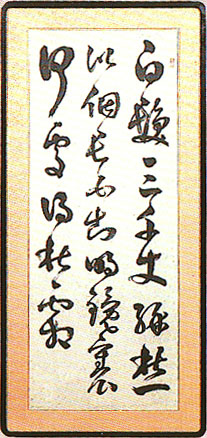 白髮三千丈緣愁
似個長不知明鏡裏
何處得秋霜